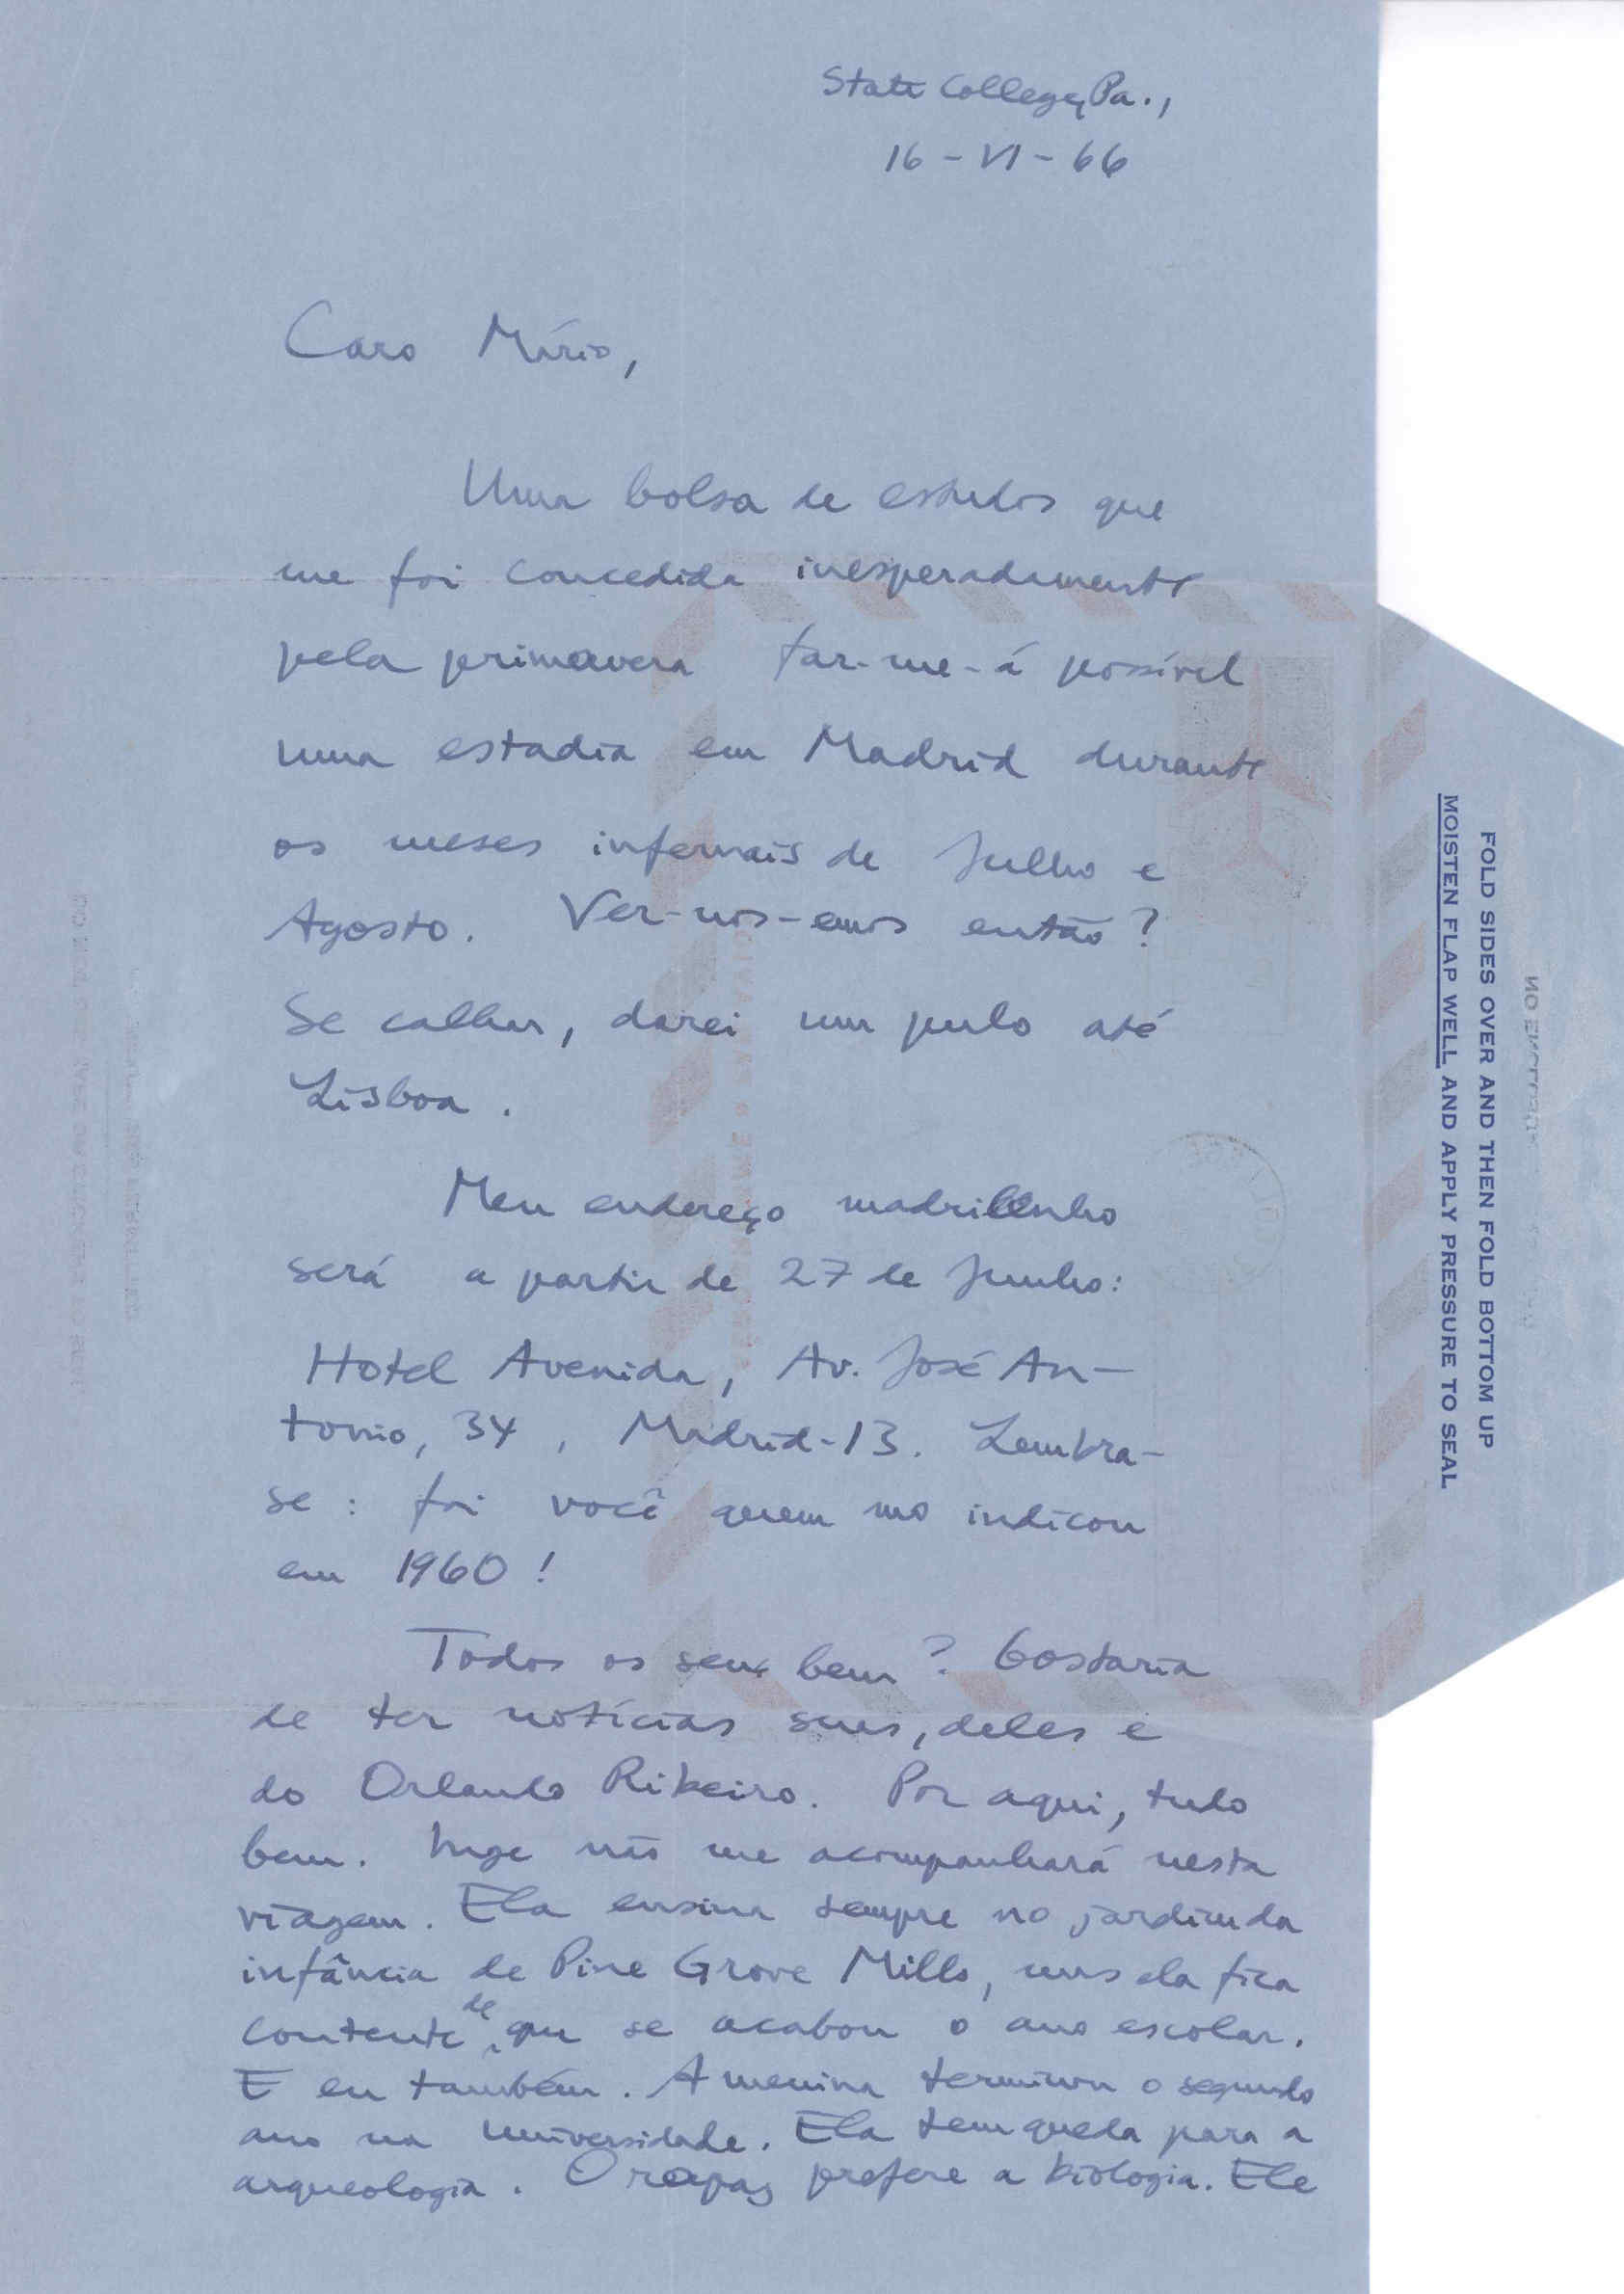 State College, Pa.,
16-VI-66
Caro Mário,
Uma bolsa de estudos que
me foi concedida inesperadamente
pela primavera far-me-á possível
uma estadia em Madrid durante
os meses infernais de Julho e
Agosto. Ver-nos-emos então?
Se calhar, darei um pulo até
Lisboa.
Meu endereço madrilenho
será a partir de 27 de Junho:
Hotel Avenida, Av. José An-
tonio, 34, Madrid-13. Lembra-
se: foi você quem mo indicou
em 1960!
Todos os seus bem? Gostaria
de ter notícias suas, deles e
do Orlando Ribeiro. Por aqui, tudo
bem. Inge não me acompanhará nesta
viagem. Ela ensina sempre no jardim da
infância de Pine Grove Mills, mas ela fica
contente de que se acabou o ano escolar.
E eu também. A menina terminou o segundo
ano na universidade. Ela tem queda para a
arqueologia. O rapaz prefere a biologia. Ele
FOLD SIDES OVER AND THEN FOLD BOTTOM UP
MOISTEN FLAP WELL AND APPLY PRESSURE TO SEAL